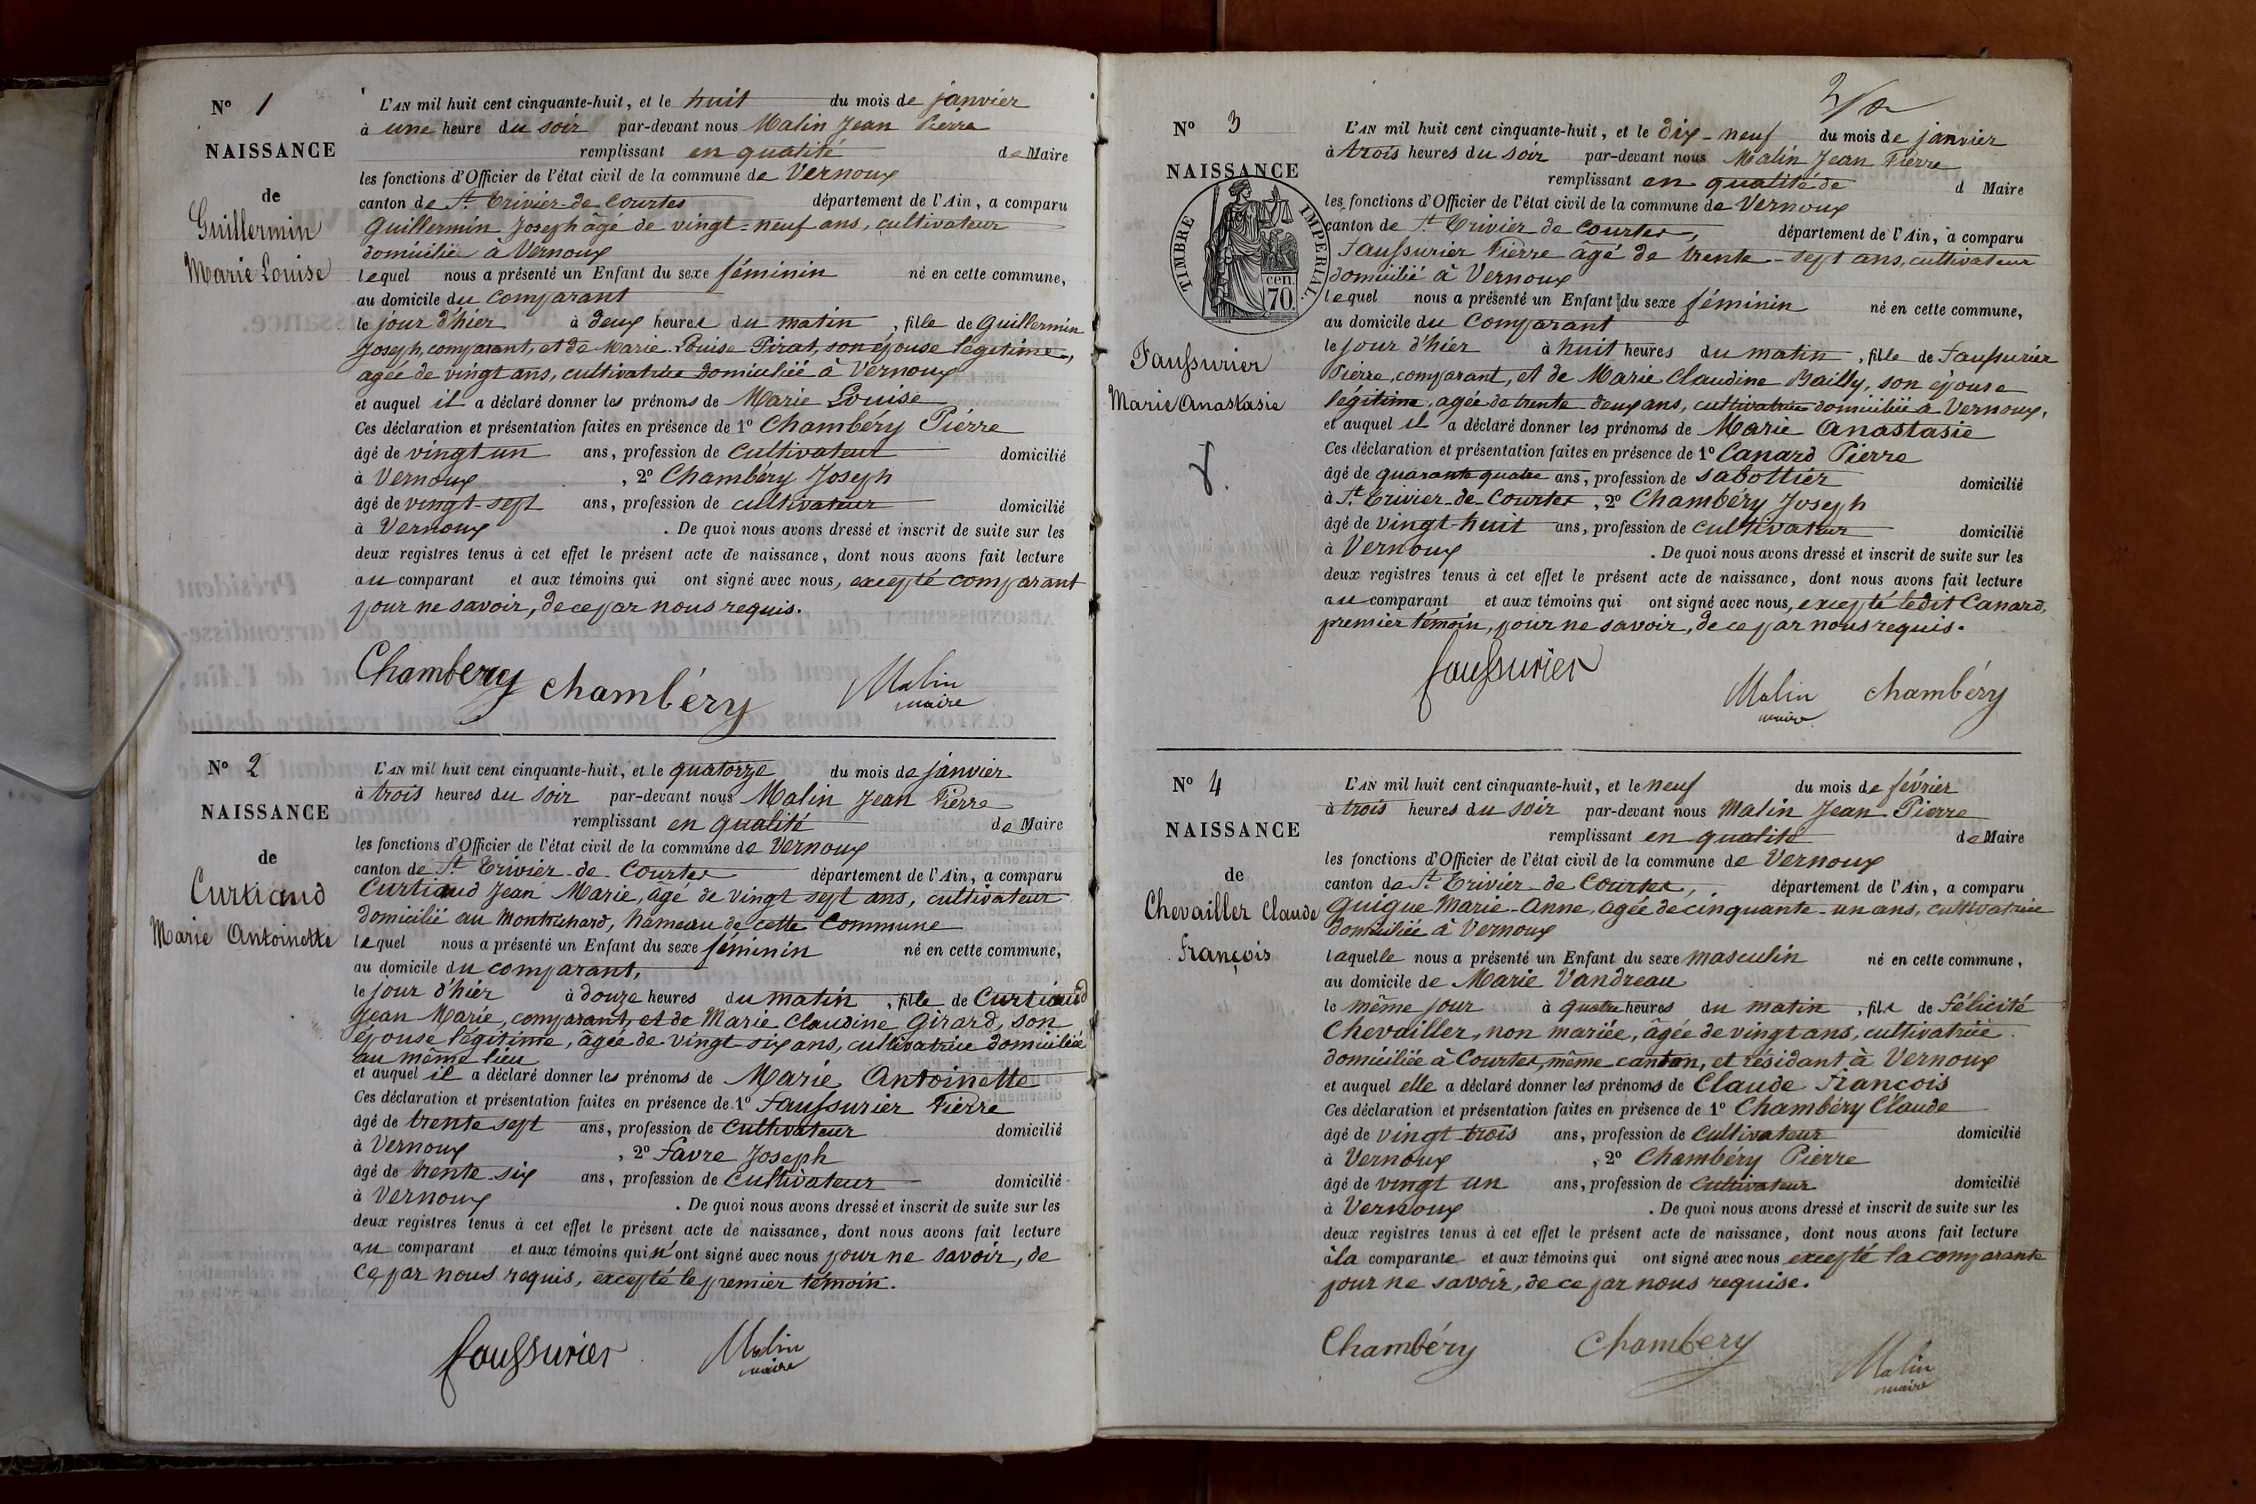 N° 1
NAISSANCE
de
Guillermin
Marie Louise
L'AN mil huit cent cinquante-huit, et le huit du mois de janvier
à une heure du soir par-devant nous Malin Jean Pierre
remplissant en qualité de Maire
les fonctions d'Officier de l'état civil de la commune de Vernoux
canton de St Trivier de Courtes département de l'Ain, a comparu
Guillermin Joseph âgé de vingt-neuf ans, cultivateur
domicilié à Vernoux
lequel nous a présenté un Enfant du sexe féminin né en cette commune,
au domicile du comparant
le jour d'hier à deux heures du matin, fille de Guillermin
Joseph, comparant, et de Marie Louise Pirat, son épouse légitime,
agée de vingt ans, cultivatrice domiciliée à Vernoux
et auquel il a déclaré donner les prénoms de Marie Louise
Ces déclaration et présentation faites en présence de 1° Chambéry Pierre
âgé de vingt un ans, profession de cultivateur domicilié
à Vernoux, 2° Chambéry Joseph
âgé de vingt-sept ans, profession de cultivateur domicilié
à Vernoux. De quoi nous avons dressé et inscrit de suite sur les
deux registres tenus à cet effet le présent acte de naissance, dont nous avons fait lecture
au comparant et aux témoins qui ont signé avec nous, excepté comparant
pour ne savoir, de ce par nous requis.
Chambery chambéry Malin
maire
N° 2
NAISSANCE
de
Curtiaud
Marie Antoinette
L'AN mil huit cent cinquante-huit, et le quatorze du mois de janvier
à trois heures du soir par-devant nous Malin Jean Pierre
remplissant en qualité de Maire
les fonctions d'Officier de l'état civil de la commune de Vernoux
canton de St Trivier de Courtes département de l'Ain, a comparu
Curtiaud Jean Marie, âgé de vingt sept ans, cultivateur
domicilié au Montrichard, hameau de cette Commune
lequel nous a présenté un Enfant du sexe féminin né en cette commune,
au domicile du comparant,
le jour d'hier à douze heures du matin, fille de Curtiaud
Jean Marie, comparant, et de Marie Claudine Girard, son
épouse légitime, âgée de vingt six ans, cultivatrice domiciliée
au même lieu
et auquel il a déclaré donner les prénoms de Marie Antoinette
Ces déclaration et présentation faites en présence de 1° Faussurier Pierre
âgé de trente sept ans, profession de cultivateur domicilié
à Vernoux, 2° Favre Joseph
âgé de trente six ans, profession de cultivateur domicilié
à Vernoux. De quoi nous avons dressé et inscrit de suite sur les
deux registres tenus à cet effet le présent acte de naissance, dont nous avons fait lecture
au comparant et aux témoins qui n'ont signé avec nous pour ne savoir, de
ce par nous requis, excepté le premier témoin.
faussurier Malin
maire
N° 3
NAISSANCE
TIMBRE IMPERIAL
cen. 70
Faussurier
Marie Anastasie
L'AN mil huit cent cinquante-huit, et le dix-neuf du mois de janvier
à trois heures du soir par-devant nous Malin Jean Pierre
remplissant en qualité de d Maire
les fonctions d'Officier de l'état civil de la commune de Vernoux
canton de St Trivier de Courtes, département de l'Ain, a comparu
Faussurier Pierre âgé de trente-sept ans, cultivateur
domicilié à Vernoux
lequel nous a présenté un Enfant du sexe féminin né en cette commune,
au domicile du comparant
le jour d'hier à huit heures du matin, fille de Faussurier
Pierre, comparant, et de Marie Claudine Bailly, son épouse
légitime, agée de trente deux ans, cultivatrice domiciliée à Vernoux,
et auquel il a déclaré donner les prénoms de Marie Anastasie
Ces déclaration et présentation faites en présence de 1° Canard Pierre
âgé de quarante quatre ans, profession de sabottier domicilié
à St Trivier de Courtes, 2° Chambéry Joseph
âgé de vingt-huit ans, profession de cultivateur domicilié
à Vernoux. De quoi nous avons dressé et inscrit de suite sur les
deux registres tenus à cet effet le présent acte de naissance, dont nous avons fait lecture
au comparant et aux témoins qui ont signé avec nous, excepté ledit Canard,
premier témoin, pour ne savoir, de ce par nous requis.
faussurier
Malin chambéry
maire
N° 4
NAISSANCE
de
Chevailler Claude
François
L'AN mil huit cent cinquante-huit, et le neuf du mois de février
à trois heures du soir par-devant nous Malin Jean Pierre
remplissant en qualité de Maire
les fonctions d'Officier de l'état civil de la commune de Vernoux
canton de St Trivier de Courtes, département de l'Ain, a comparu
Guigue Marie-Anne, agée de cinquante-un ans, cultivatrice
domiciliée à Vernoux
laquelle nous a présenté un Enfant du sexe masculin né en cette commune,
au domicile de Marie Vandreau
le même jour à quatre heures du matin, fils de Félicité
Chevailler, non mariée, âgée de vingt ans, cultivatrice
domiciliée à Courtes, même canton, et résidant à Vernoux
et auquel elle a déclaré donner les prénoms de Claude François
Ces déclaration et présentation faites en présence de 1° Chambéry Claude
âgé de vingt-trois ans, profession de cultivateur domicilié
à Vernoux, 2° Chambéry Pierre
âgé de vingt un ans, profession de cultivateur domicilié
à Vernoux. De quoi nous avons dressé et inscrit de suite sur les
deux registres tenus à cet effet le présent acte de naissance, dont nous avons fait lecture
à la comparante et aux témoins qui ont signé avec nous excepté la comparante
pour ne savoir, de ce par nous requise.
Chambéry Chambery Malin
maire